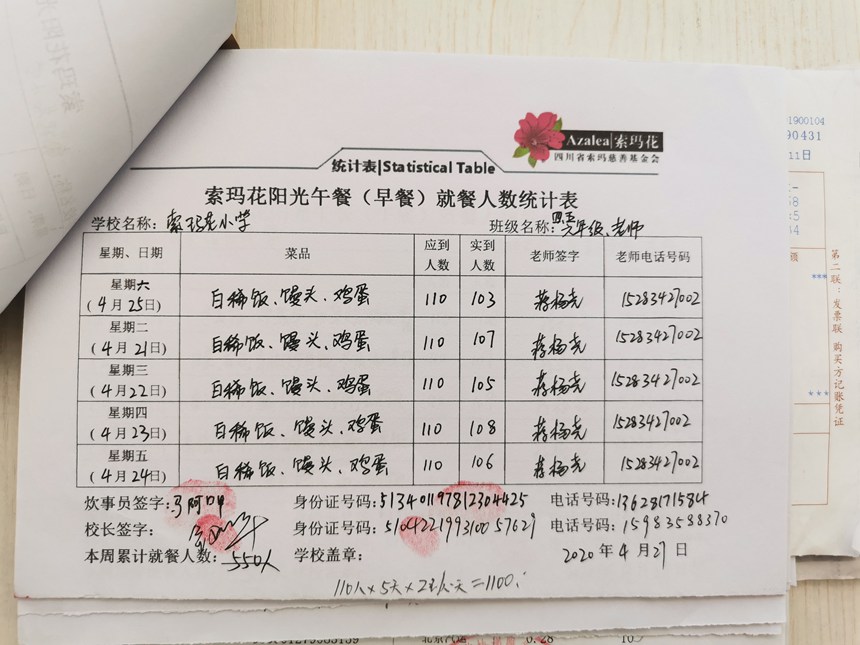 Azalea 索玛花
四川省索玛慈善基金会
统计表|Statistical Table
索玛花阳光午餐（早餐）就餐人数统计表
学校名称：索玛花小学 班级名称： 年级、老师
星期、日期 菜品 应到人数 实到人数 老师签字 老师电话号码
星期六（4月25日） 白稀饭、馒头、鸡蛋 110 103 蒋杨尧 15283427002
星期二（4月21日） 白稀饭、馒头、鸡蛋 110 107 蒋杨尧 15283427002
星期三（4月22日） 白稀饭、馒头、鸡蛋 110 105 蒋杨尧 15283427002
星期四（4月23日） 白稀饭、馒头、鸡蛋 110 108 蒋杨尧 15283427002
星期五（4月24日） 白稀饭、馒头、鸡蛋 110 106 蒋杨尧 15283427002
炊事员签字： 身份证号码：513401197812304425 电话号码：13628171584
校长签字： 身份证号码：510422199310057629 电话号码：15983588370
本周累计就餐人数：550人 学校盖章： 2020年4月27日
110人×5天×2元/人天=1100.
1900104
90431
11日
第二联：发票联 购买方记账凭证